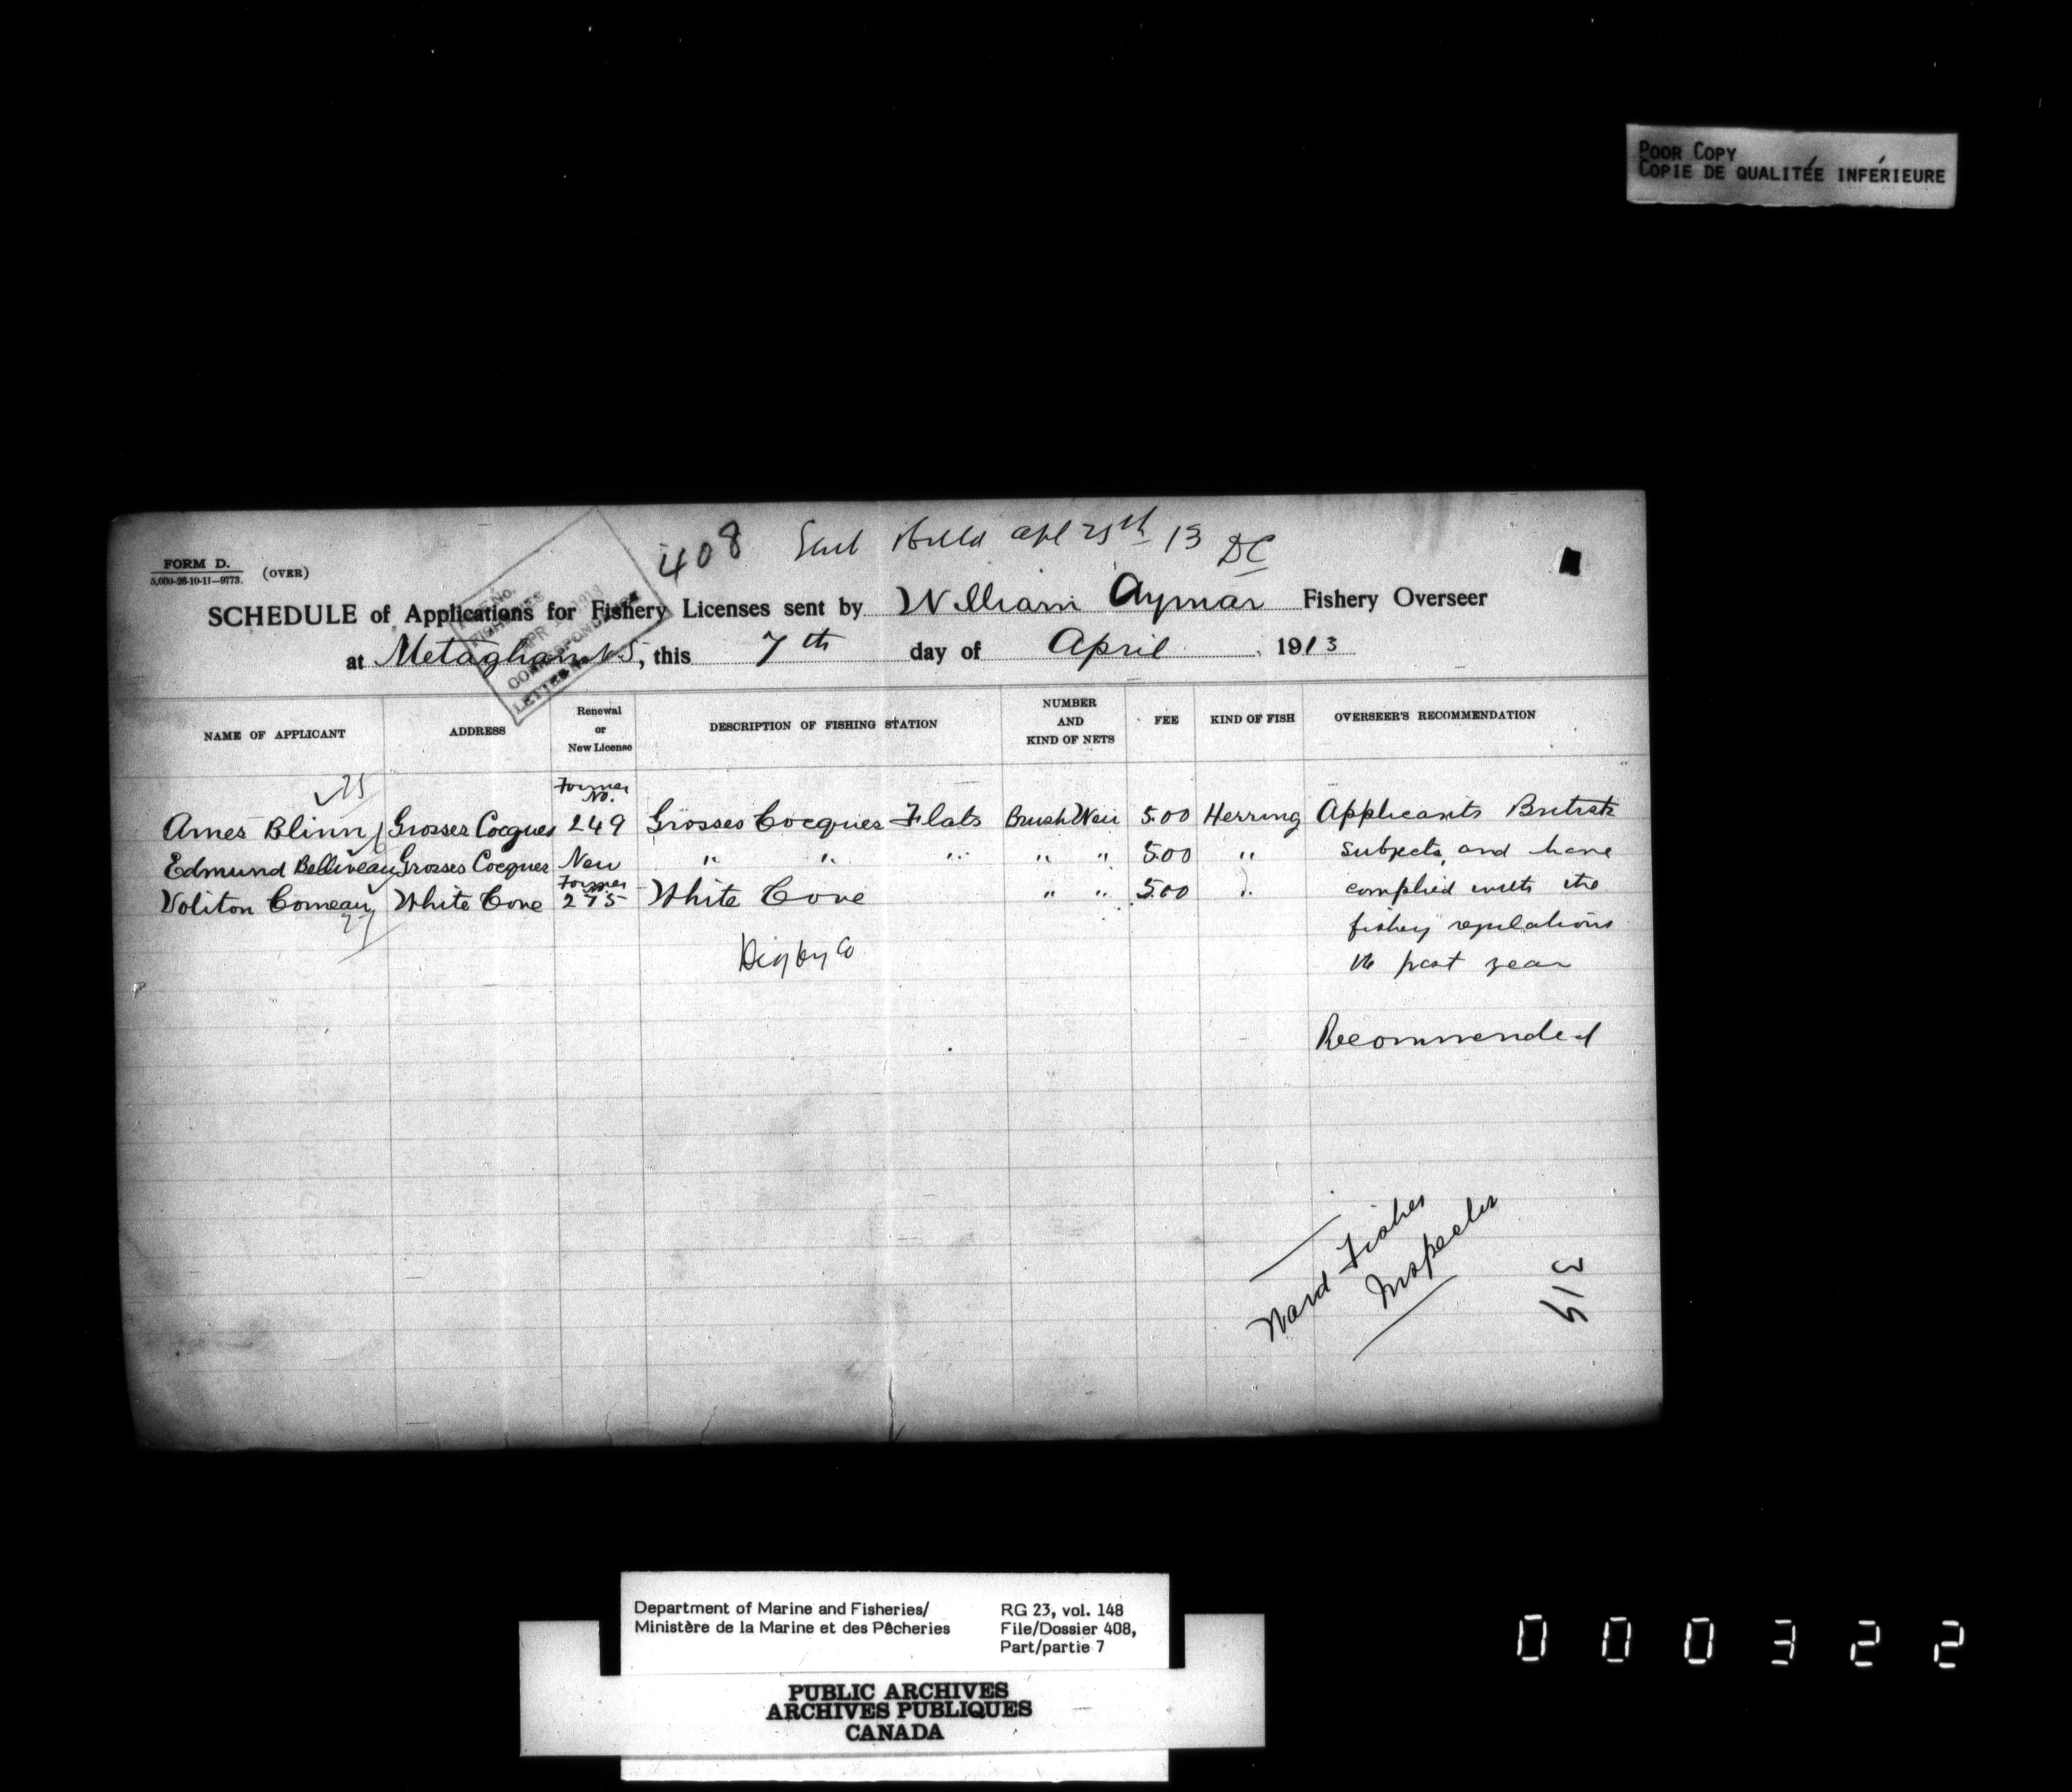 POOR COPY
COPIE DE QUALITÉE INFÉRIEURE
408 apl 25th 13 DC
FORM D. (OVER)
5,000-26-10-11-9773.
SCHEDULE of Applications for Fishery Licenses sent by William Aymar Fishery Overseer
at Metaghan N.S, this 7th day of April 1913
NAME OF APPLICANT ADDRESS Renewal or New License DESCRIPTION OF FISHING STATION NUMBER AND KIND OF NETS FEE KIND OF FISH OVERSEER'S RECOMMENDATION
Former No.
Ames Blinn Grosses Cocques 249 Grosses Cocques Flats Brush Weir 5.00 Herring Applicants British
Edmund Belliveau Grosses Cocques New " " " " " 5.00 " subjects, and have
Former
Voliton Comeau White Cove 275 White Cove " " 5.00 " complied with the
27 fishery regulations
Digby Co past year
Recommended
Ward Fisher
Inspector
315
Department of Marine and Fisheries/
Ministère de la Marine et des Pêcheries
RG 23, vol. 148
File/Dossier 408,
Part/partie 7
PUBLIC ARCHIVES
ARCHIVES PUBLIQUES
CANADA
000322